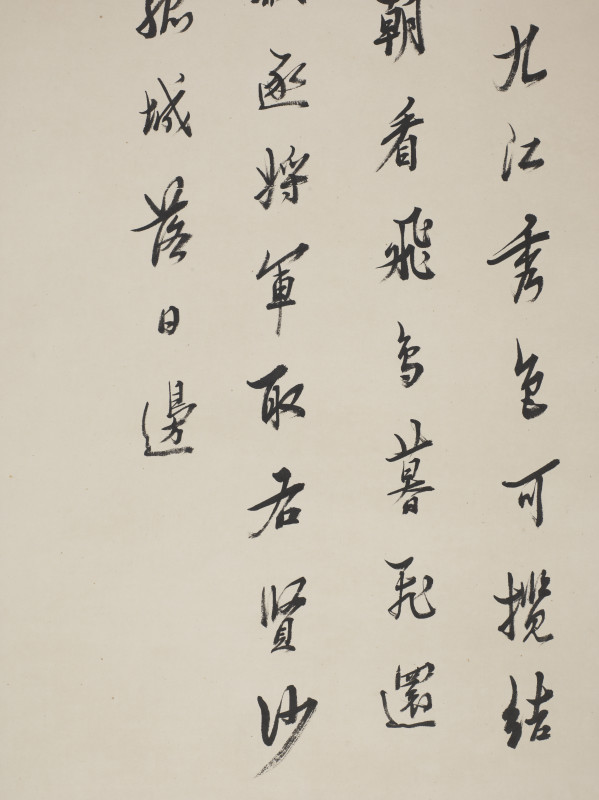 九江秀色可攬結
朝看飛鳥暮飛還
逐將軍取右賢沙
城落日邊